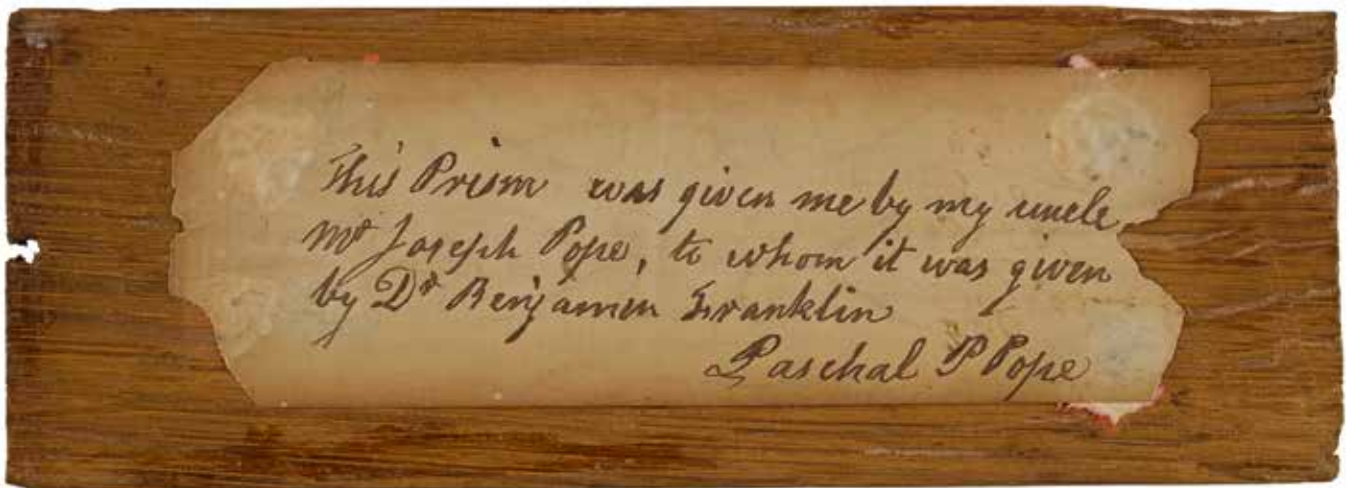 This Prism was given me by my uncle
Mr Joseph Pope, to whom it was given
by Dr Benjamen Franklin
Paschal P Pope